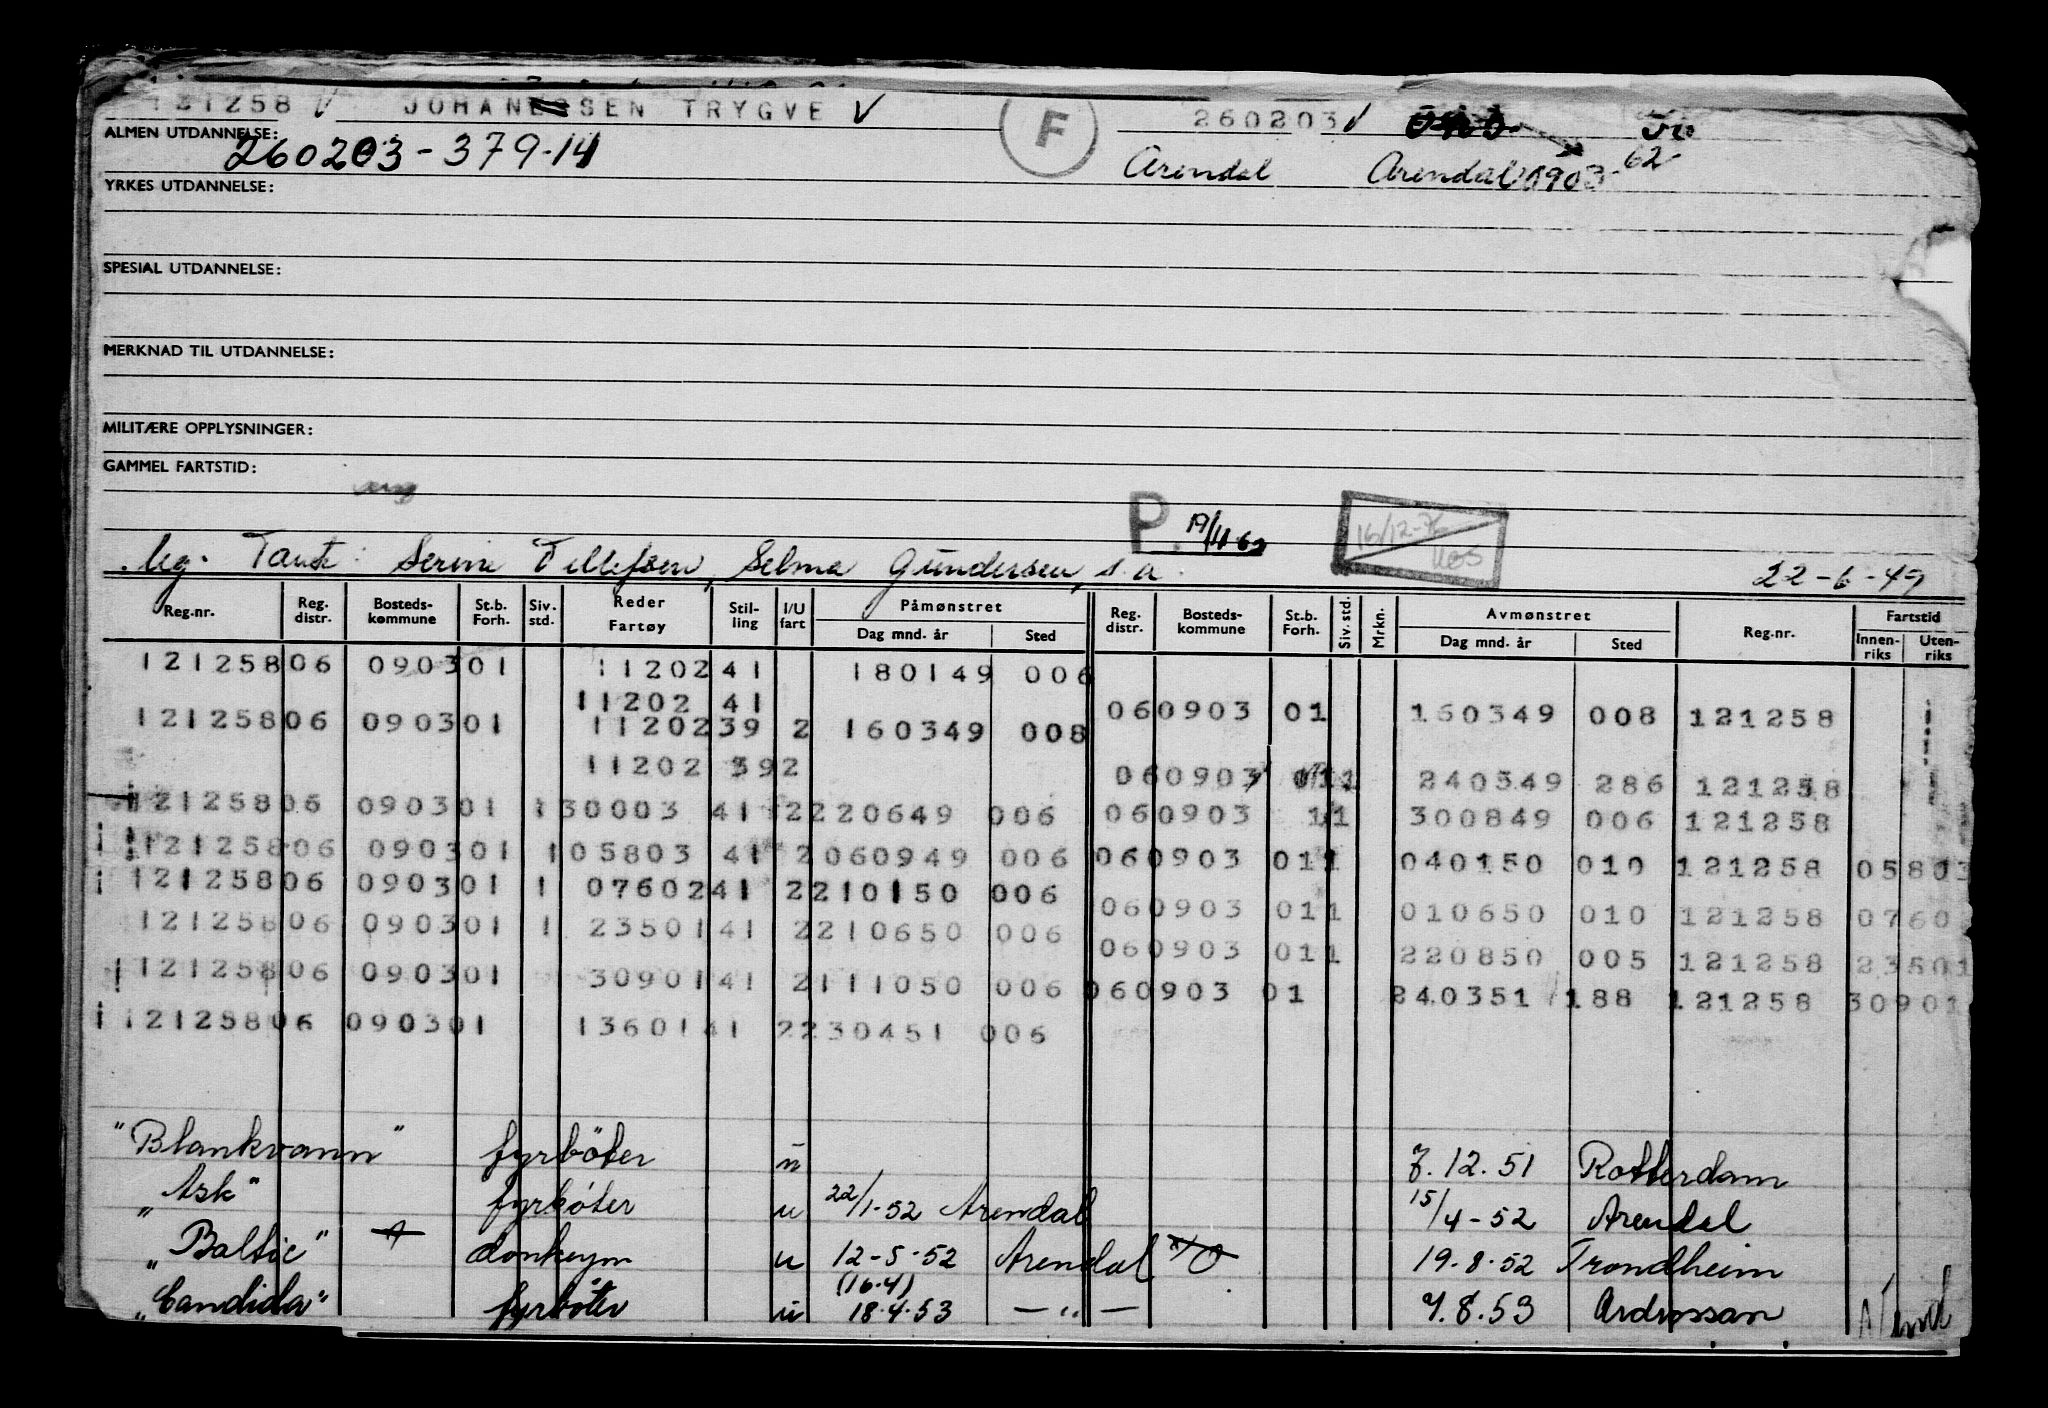 121258 V JOHANSEN TRYGVE V F 260203 V
ALMEN UTDANNELSE: 260203-379-14 Arendal Arendal 1903- 62-
YRKES UTDANNELSE:
SPESIAL UTDANNELSE:
MERKNAD TIL UTDANNELSE:
MILITÆRE OPPLYSNINGER:
GAMMEL FARTSTID:
P. 19/11-62 16/12-76
Tante: Serine Tellefsen, Selma Gundersen, s.a. 22-6-49
Reg.nr. Reg. distr. Bosteds-kommune St.b. Forh. Siv. std. Reder Fartøy Stil-ling I/U fart Påmønstret Dag mnd. år Sted Reg. distr. Bosteds-kommune St.b. Forh. Siv. std. Mrkn. Avmønstret Dag mnd. år Sted Reg.nr. Fartstid Innen-riks Uten-riks
121258 06 0903 01 11202 41 180149 006
11202 41 06 0903 01 160349 008 121258
121258 06 0903 01 11202 39 2 160349 008
11202 39 2 06 0903 01 1 240349 286 121258
121258 06 0903 01 1 30003 41 2 220649 006 06 0903 1 1 300849 006 121258
121258 06 0903 01 1 05803 41 2 060949 006 06 0903 01 1 040150 010 121258 05803
121258 06 0903 01 1 07602 41 2 210150 006 06 0903 01 1 010650 010 121258 0760
121258 06 0903 01 1 23501 41 2 210650 006 06 0903 01 1 220850 005 121258 23501
121258 06 0903 01 30901 41 2 111050 006 06 0903 01 240351 188 121258 30901
121258 06 0903 01 13601 41 2 230451 006
"Blankvann" fyrböter u 7.12.51 Rotterdam
"Ask" fyrböter u 22/1-52 Arendal 15/4-52 Arendal
"Baltic" donkeym u 12-5-52 Arendal 19.8.52 Trondheim
(16.4)
"Candida" fyrböter u 18.4.53 — „ — 7.8.53 Ardrossan